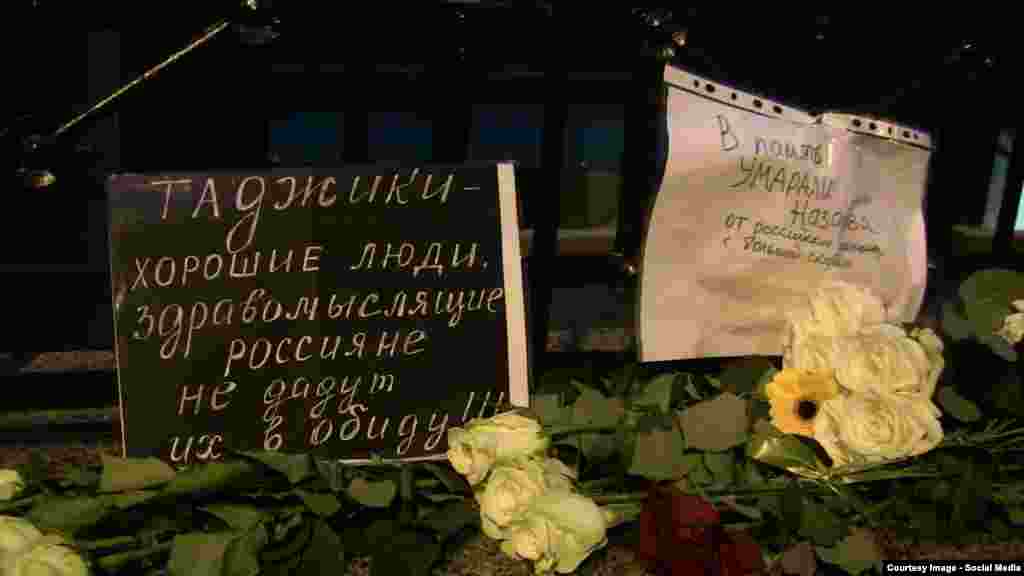 ТАДЖИКИ -
ХОРОШИЕ ЛЮДИ.
ЗДРАВОМЫСЛЯЩИЕ
РОССИЯНЕ
НЕ ДАДУТ
ИХ В ОБИДУ!!!
В память
УМАРАЛИ
Назова
от российских
с большой
Courtesy Image - Social Media